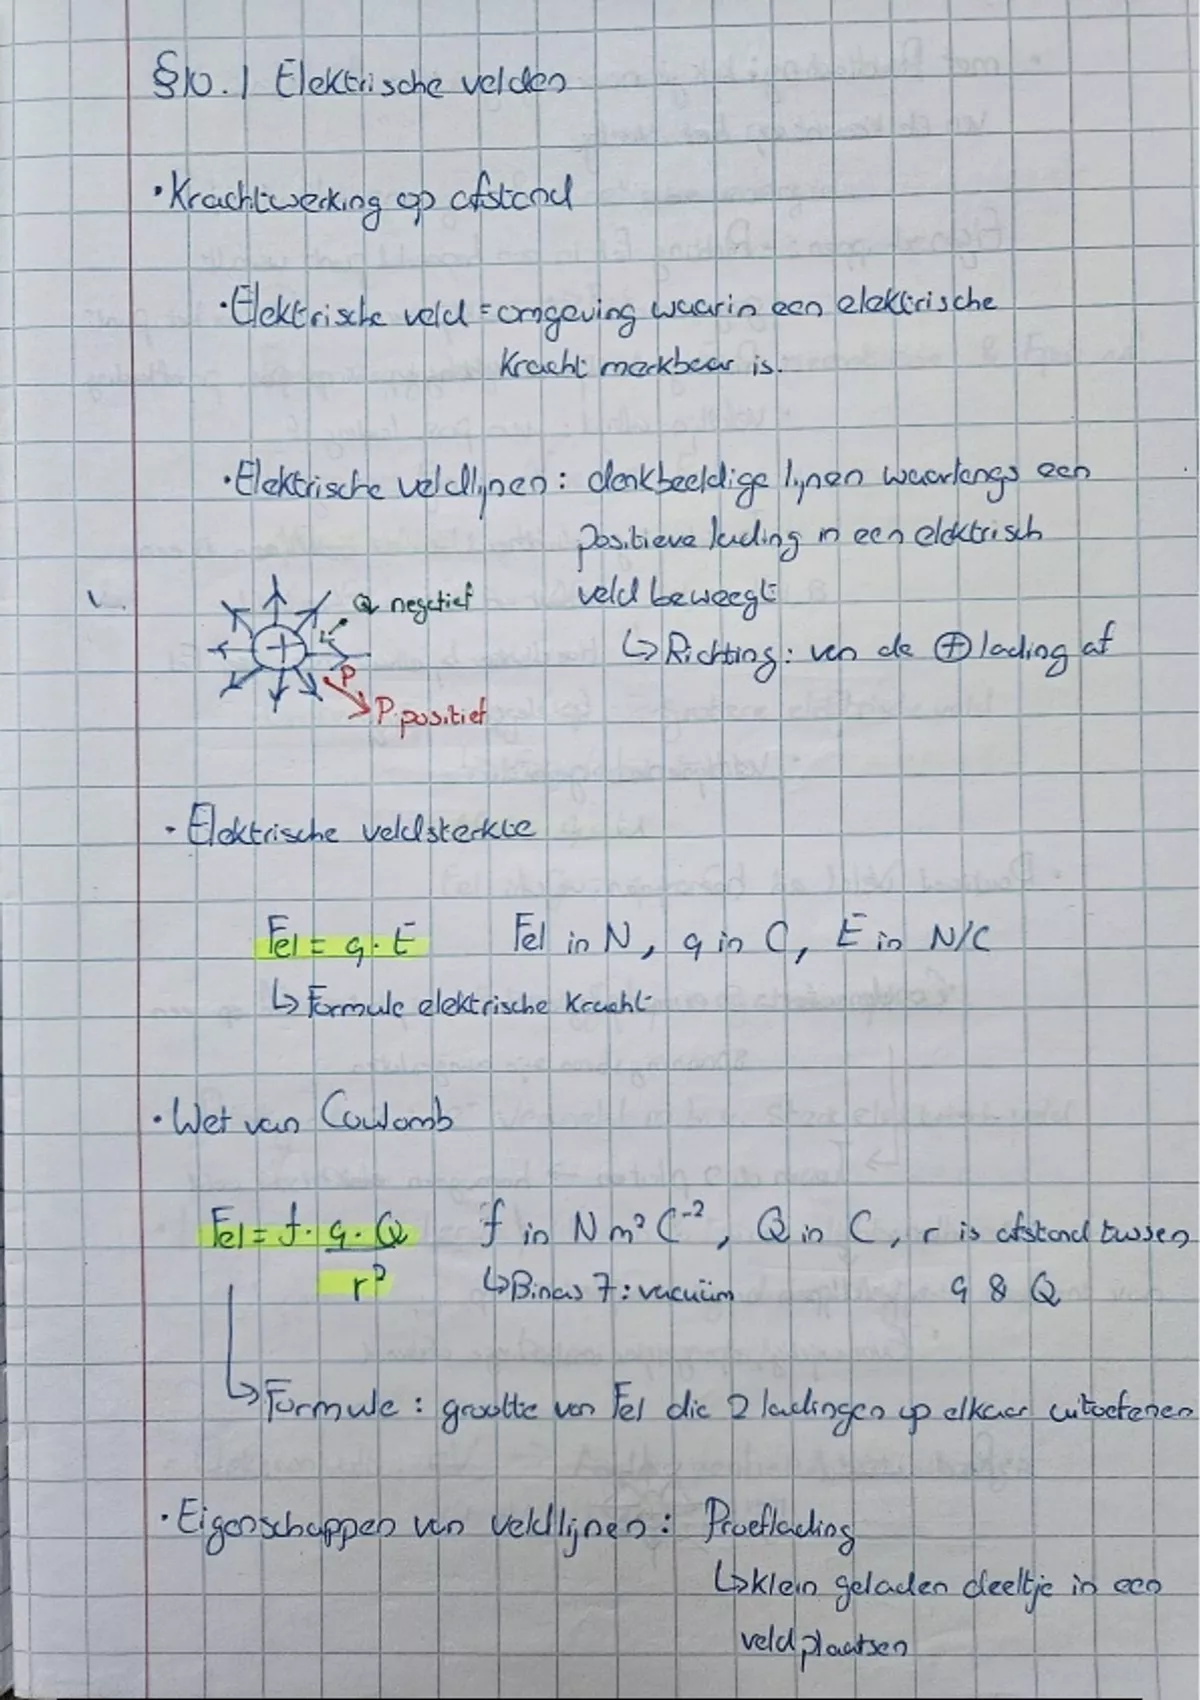 §10.1 Elektrische velden
• Krachtwerking op afstand
• Elektrische veld = omgeving waarin een elektrische
kracht merkbaar is.
• Elektrische veldlijnen: denkbeeldige lijnen waarlangs een
positieve lading in een elektrisch
veld beweegt
↳ Richting: van de ⊕ lading af
Q negatief
+
P
P. positief
• Elektrische veldsterkte
Fel = q · E Fel in N, q in C, E in N/C
↳ Formule elektrische kracht
• Wet van Coulomb
Fel = f · q · Q f in N m² C⁻², Q in C, r is afstand tussen
r² ↳ Binas 7: vacuüm q & Q
↳ Formule: grootte van Fel die 2 ladingen op elkaar uitoefenen
• Eigenschappen van veldlijnen: Proeflading
↳ klein geladen deeltje in een
veld plaatsen